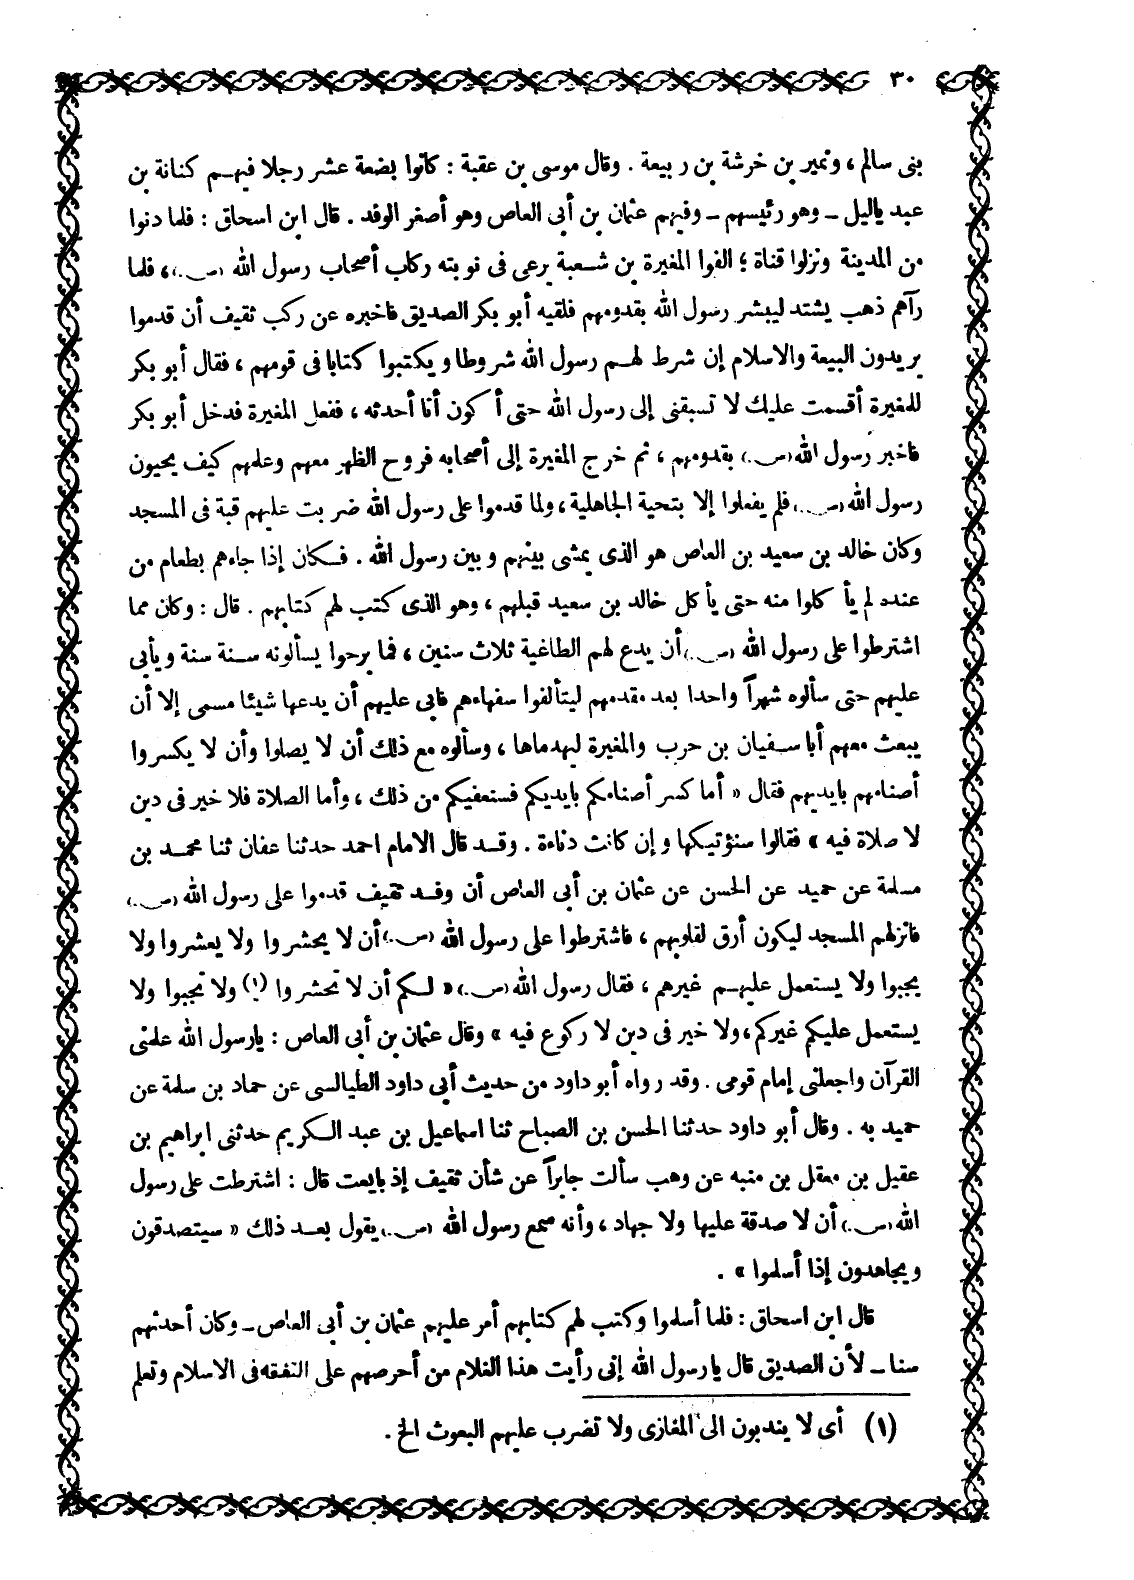 ٣٠
بنى سالم ، ونمير بن خرشة بن ربيعة . وقال موسى بن عقبة : كانوا بضعة عشر رجلا فيهم كنانة بن
عبد ياليل - وهو رئيسهم - وفيهم عثمان بن أبى العاص وهو أصغر الوفد . قال ابن اسحاق : فلما دنوا
من المدينة ونزلوا قناة ؛ الفوا المغيرة بن شعبة يرعى فى نوبته ركاب أصحاب رسول الله (ص) ، فلما
رآهم ذهب يشتد ليبشر رسول الله بقدومهم فلقيه أبو بكر الصديق فاخبره عن ركب ثقيف أن قدموا
يريدون البيعة والاسلام إن شرط لهم رسول الله شروطا ويكتبوا كتابا فى قومهم ، فقال أبو بكر
للمغيرة أقسمت عليك لا تسبقنى إلى رسول الله حتى أكون أنا أحدثه ، ففعل المغيرة فدخل أبو بكر
فاخبر رسول الله (ص) بقدومهم ، ثم خرج المغيرة إلى أصحابه فروح الظهر معهم وعلمهم كيف يحيون
رسول الله (ص) فلم يفعلوا إلا بتحية الجاهلية ، ولما قدموا على رسول الله ضربت عليهم قبة فى المسجد
وكان خالد بن سعيد بن العاص هو الذى يمشى بينهم وبين رسول الله . فكان إذا جاءهم بطعام من
عنده لم يأكلوا منه حتى يأكل خالد بن سعيد قبلهم ، وهو الذى كتب لهم كتابهم . قال : وكان مما
اشترطوا على رسول الله (ص) أن يدع لهم الطاغية ثلاث سنين ، فما برحوا يسألونه سنة سنة ويأبى
عليهم حتى سألوه شهراً واحدا بعد مقدمهم ليتألفوا سفهاءهم فابى عليهم أن يدعها شيئا مسمى إلا أن
يبعث معهم أبا سفيان بن حرب والمغيرة ليهدماها ، وسألوه مع ذلك أن لا يصلوا وأن لا يكسروا
أصنامهم بايديهم فقال « أما كسر أصنامكم بايديكم فسنعفيكم من ذلك ، وأما الصلاة فلا خير فى دين
لا صلاة فيه » فقالوا سنؤتيكها وإن كانت دناءة . وقد قال الامام احمد حدثنا عفان ثنا محمد بن
مسلمة عن حميد عن الحسن عن عثمان بن أبى العاص أن وفد ثقيف قدموا على رسول الله (ص)
فانزلهم المسجد ليكون أرق لقلوبهم ، فاشترطوا على رسول الله (ص) أن لا يحشروا ولا يعشروا ولا
يجبوا ولا يستعمل عليهم غيرهم ، فقال رسول الله (ص) « لكم أن لا تحشروا (١) ولا تجبوا ولا
يستعمل عليكم غيركم ، ولا خير فى دين لا ركوع فيه » وقال عثمان بن أبى العاص : يارسول الله علمنى
القرآن واجعلنى إمام قومى . وقد رواه أبو داود من حديث أبى داود الطيالسى عن حماد بن سلمة عن
حميد به . وقال أبو داود حدثنا الحسن بن الصباح ثنا اسماعيل بن عبد الكريم حدثنى ابراهيم بن
عقيل بن معقل بن منبه عن وهب سألت جابراً عن شأن ثقيف إذ بايعت قال : اشترطت على رسول
الله (ص) أن لا صدقة عليها ولا جهاد ، وأنه سمع رسول الله (ص) يقول بعد ذلك « سيتصدقون
ويجاهدون إذا أسلموا » .
قال ابن اسحاق : فلما أسلموا وكتب لهم كتابهم أمر عليهم عثمان بن أبى العاص - وكان أحدثهم
سنا - لأن الصديق قال يا رسول الله إنى رأيت هذا الغلام من أحرصهم على التفقه فى الاسلام وتعلم
(١) أى لا يندبون الى المغازى ولا تضرب عليهم البعوث الخ .